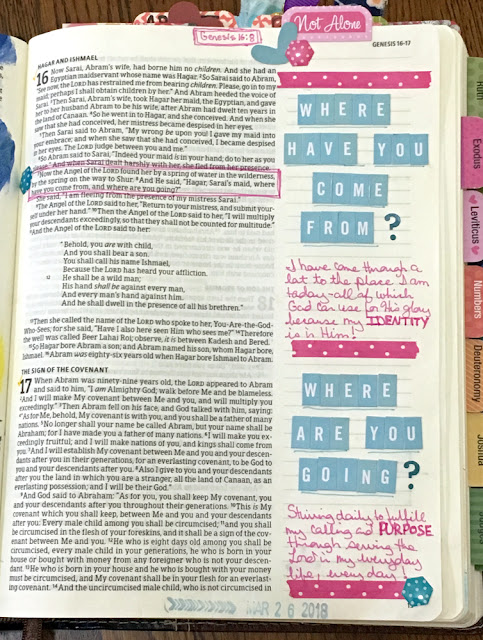 Not Alone
Genesis 16:8
GENESIS 16-17
HAGAR AND ISHMAEL
16 Now Sarai, Abram's wife, had borne him no children. And she had an
Egyptian maidservant whose name was Hagar. ²So Sarai said to Abram,
"See now, the LORD has restrained me from bearing children. Please, go in to my
maid; perhaps I shall obtain children by her." And Abram heeded the voice of
Sarai. ³Then Sarai, Abram's wife, took Hagar her maid, the Egyptian, and gave
her to her husband Abram to be his wife, after Abram had dwelt ten years in
the land of Canaan. ⁴So he went in to Hagar, and she conceived. And when she
saw that she had conceived, her mistress became despised in her eyes.
⁵Then Sarai said to Abram, "My wrong be upon you! I gave my maid into
your embrace; and when she saw that she had conceived, I became despised
in her eyes. The LORD judge between you and me."
⁶So Abram said to Sarai, "Indeed your maid is in your hand; do to her as you
please." And when Sarai dealt harshly with her, she fled from her presence.
⁷Now the Angel of the LORD found her by a spring of water in the wilderness,
by the spring on the way to Shur. ⁸And He said, "Hagar, Sarai's maid, where
have you come from, and where are you going?"
She said, "I am fleeing from the presence of my mistress Sarai."
⁹The Angel of the LORD said to her, "Return to your mistress, and submit your-
self under her hand." ¹⁰Then the Angel of the LORD said to her, "I will multiply
your descendants exceedingly, so that they shall not be counted for multitude."
¹¹And the Angel of the LORD said to her:
"Behold, you are with child,
And you shall bear a son.
You shall call his name Ishmael,
Because the LORD has heard your affliction.
He shall be a wild man;
His hand shall be against every man,
And every man's hand against him.
And he shall dwell in the presence of all his brethren."
¹³Then she called the name of the LORD who spoke to her, You-Are-the-God-
Who-Sees; for she said, "Have I also here seen Him who sees me?" ¹⁴Therefore
the well was called Beer Lahai Roi; observe, it is between Kadesh and Bered.
¹⁵So Hagar bore Abram a son; and Abram named his son, whom Hagar bore,
Ishmael. ¹⁶Abram was eighty-six years old when Hagar bore Ishmael to Abram.
THE SIGN OF THE COVENANT
17 When Abram was ninety-nine years old, the LORD appeared to Abram
and said to him, "I am Almighty God; walk before Me and be blameless.
²And I will make My covenant between Me and you, and will multiply you
exceedingly." ³Then Abram fell on his face, and God talked with him, saying:
⁴"As for Me, behold, My covenant is with you, and you shall be a father of many
nations. ⁵No longer shall your name be called Abram, but your name shall be
Abraham; for I have made you a father of many nations. ⁶I will make you ex-
ceedingly fruitful; and I will make nations of you, and kings shall come from
you. ⁷And I will establish My covenant between Me and you and your descen-
dants after you in their generations, for an everlasting covenant, to be God to
you and your descendants after you. ⁸Also I give to you and your descendants
after you the land in which you are a stranger, all the land of Canaan, as an
everlasting possession; and I will be their God."
⁹And God said to Abraham: "As for you, you shall keep My covenant, you
and your descendants after you throughout their generations. ¹⁰This is My
covenant which you shall keep, between Me and you and your descendants
after you: Every male child among you shall be circumcised; ¹¹and you shall
be circumcised in the flesh of your foreskins, and it shall be a sign of the cov-
enant between Me and you. ¹²He who is eight days old among you shall be
circumcised, every male child in your generations, he who is born in your
house or bought with money from any foreigner who is not your descen-
dant. ¹³He who is born in your house and he who is bought with your money
must be circumcised, and My covenant shall be in your flesh for an everlast-
ing covenant. ¹⁴And the uncircumcised male child, who is not circumcised in
WHERE
HAVE YOU
COME
FROM?
I have come through a
lot to the place I am
today - all of which
God can use for His glory
because my IDENTITY
is in Him!
WHERE
ARE YOU
GOING?
Striving daily to fulfill
my calling and PURPOSE
through serving the
Lord in my everyday
life, every day!
MAR 26 2018
Exodus
Leviticus
Numbers
Deuteronomy
Joshua